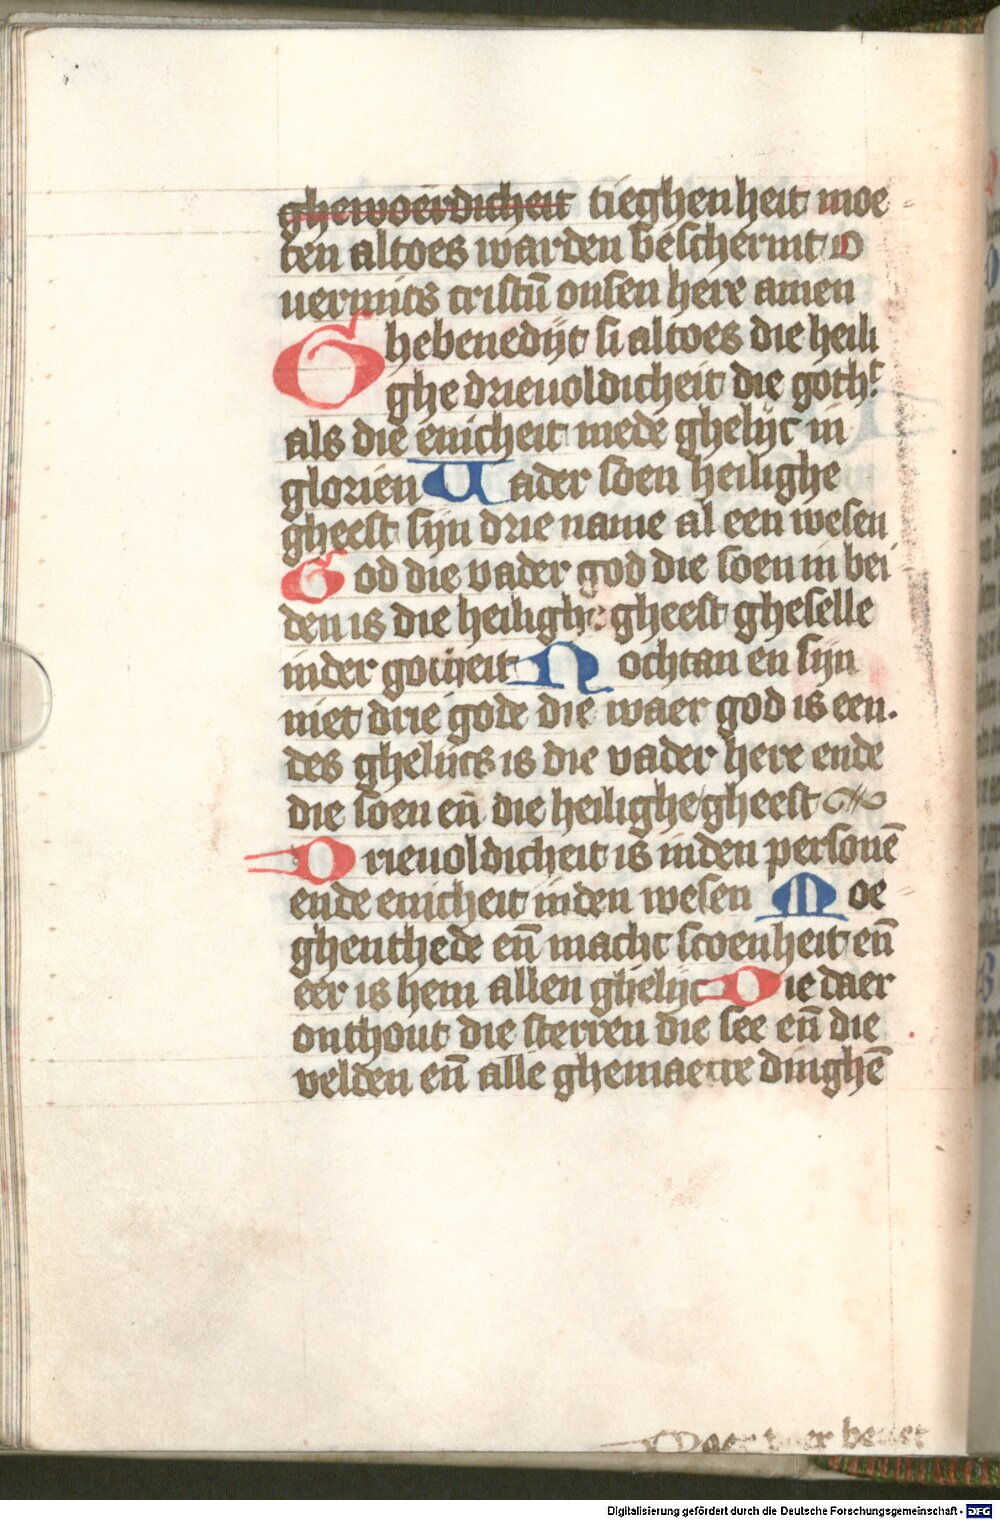 ghewoerdicheit tieghenheit moe
ten altoes warden beschermt v
uermits cristū onsen here amen
Ghebenedijt si altoes die heili
ghe drieuoldicheit die goth
als die enicheit mede ghelijc in
glorien Uader soen heilighe
gheest sijn drie name al een wesen
God die vader god die soen in bei
den is die heilighe gheest gheselle
in der gotheit Nochtan en sijn
niet drie gode die waer god is een.
des ghelijcs is die vader here ende
die soen en̄ die heilighe gheest
Drieuoldicheit is inden personē
ende enicheit inden wesen Moe
ghenthede en̄ macht scoenheit en̄
eer is hem allen ghelijc Die daer
onthout die sterren die see en̄ die
velden en̄ alle ghemaecte dinghē
Digitalisierung gefördert durch die Deutsche Forschungsgemeinschaft - DFG